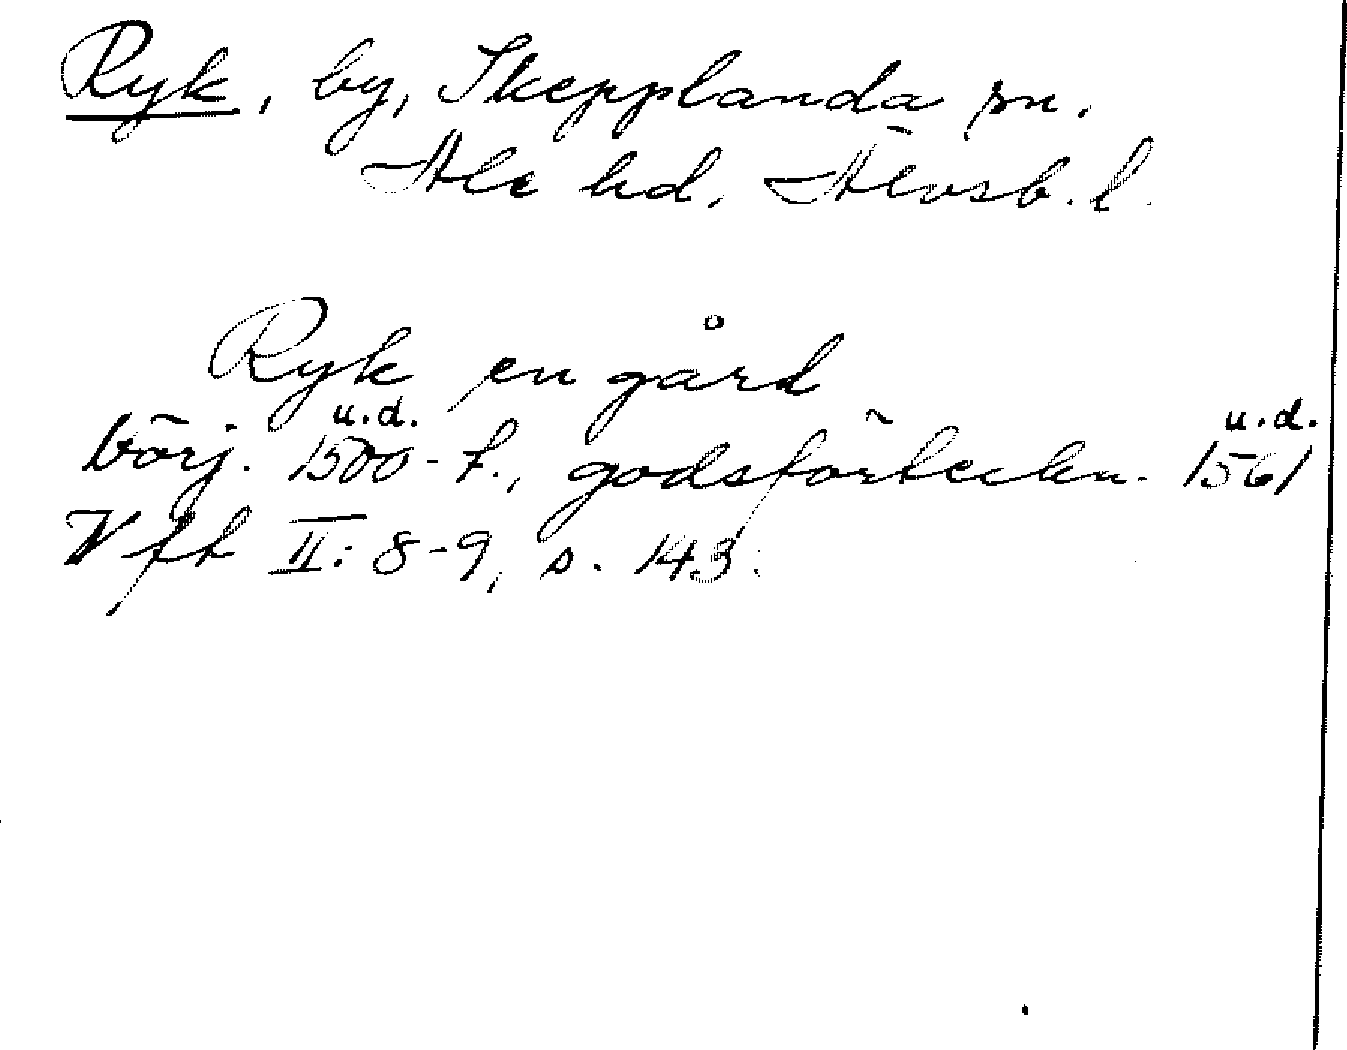 Ryk, by, Skepplanda sn.
Ale hd. Älvsb. l.
Ryk en gård
u.d. u.d.
börj. 1500-t., godsförteckn. 1561
Vft II: 8-9, s. 143.